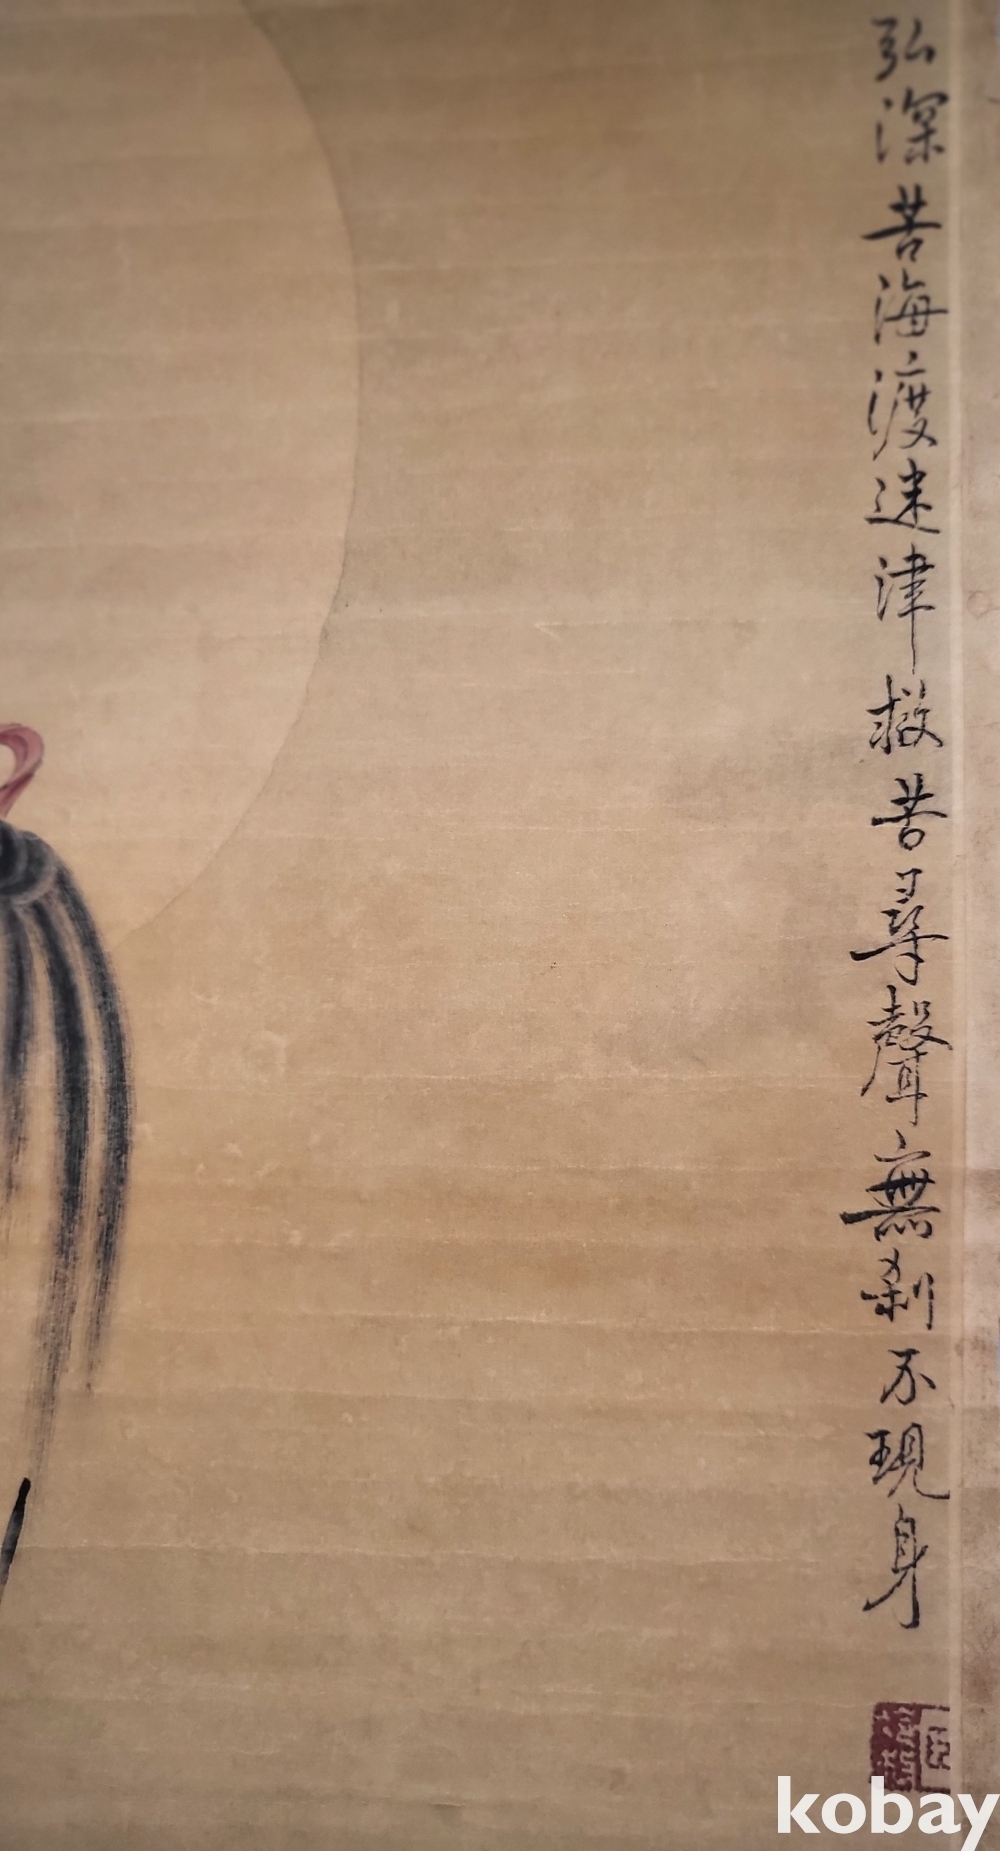 弘深苦海渡迷津救苦尋聲無刹不現身
kobay